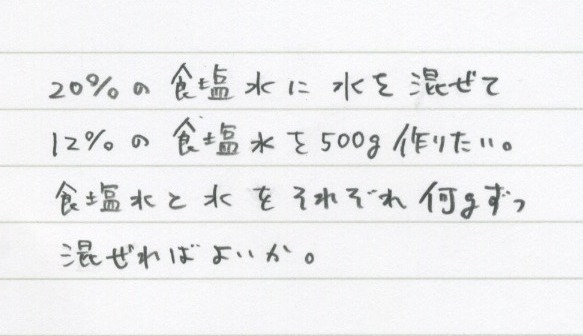 20%の食塩水に水を混ぜて
12%の食塩水を500g作りたい。
食塩水と水をそれぞれ何gずつ
混ぜればよいか。